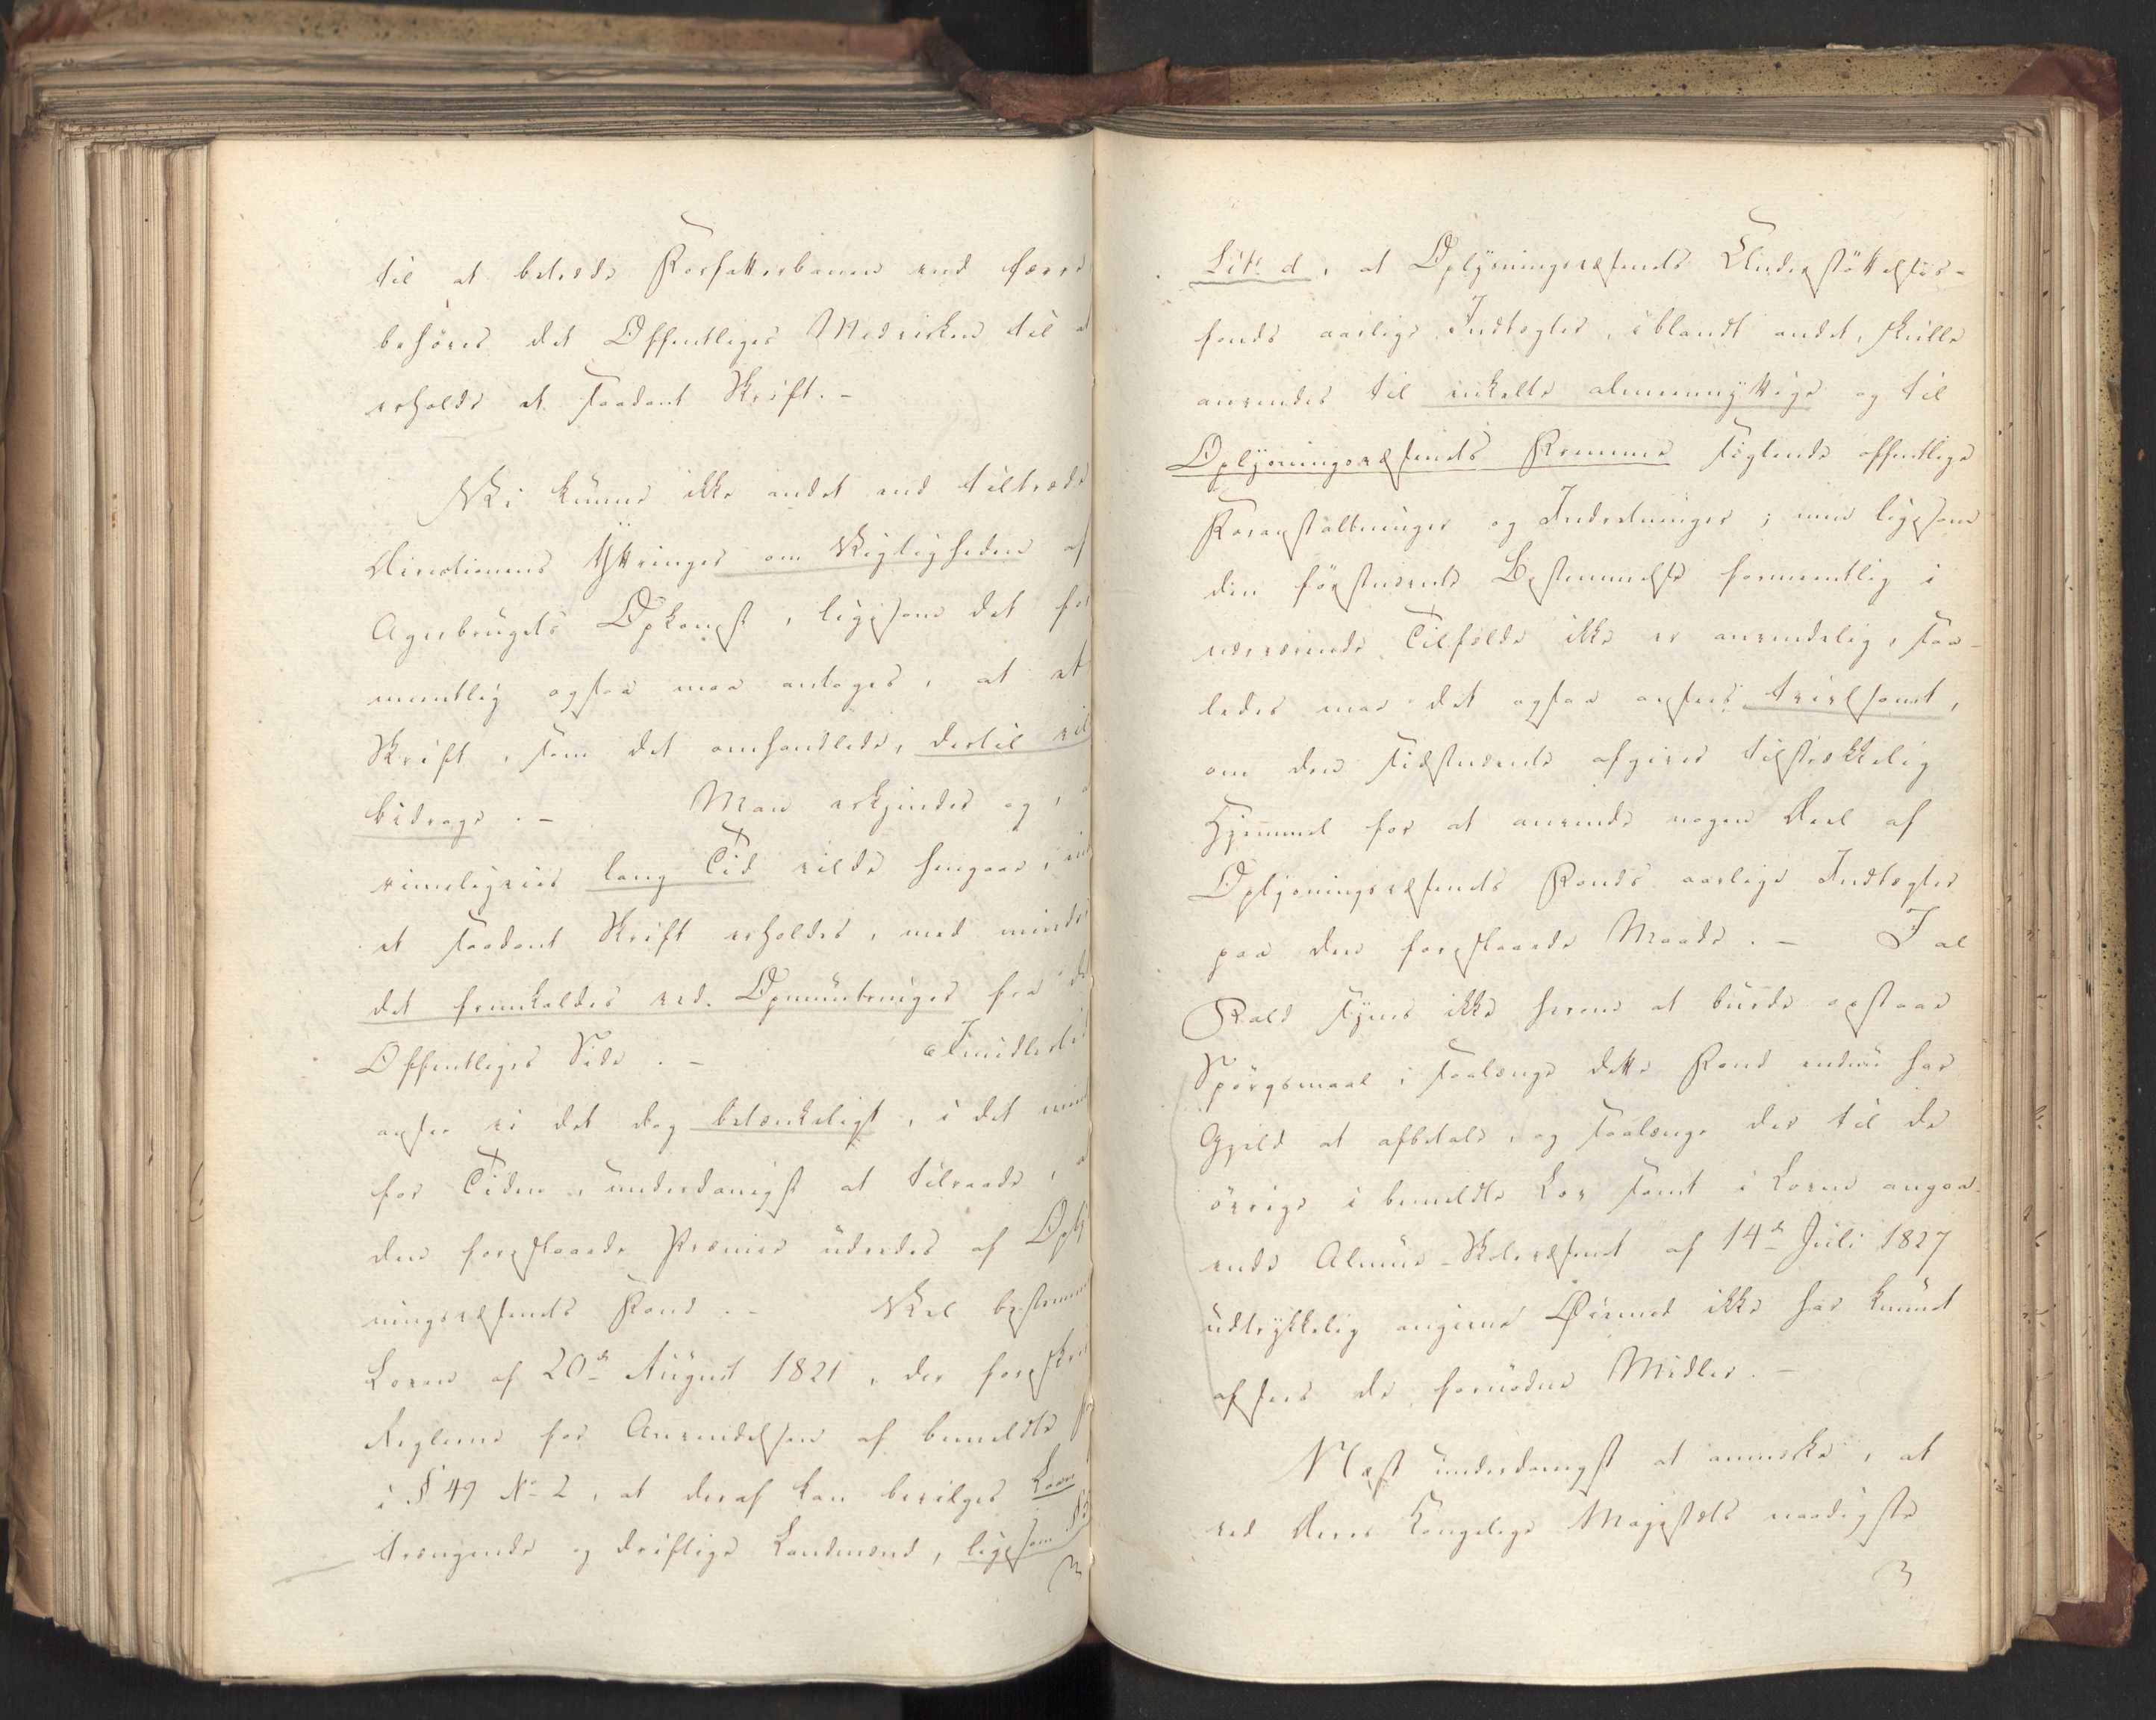 til at betræde Forfatterbanen end færre
behöves det Offentliges Medvirken til a
erholde et saadant Skrift. -
Vi kunne ikke andet end tiltræde
Directionens Yttringer om Vigtigheden af
Agerbrugets Opkomst, ligesom det for
mentlig ogsaa maa antages, at et
Skrift, som det omhandlede, dertil vil
bidrage. - Man erkjender og,
rimeligviis lang Tid vilde hengaae, ind
et saadant Skrift erholdes, med mindre
det fremkaldes ved Opmuntringer fra de
Offentliges Side. - Imidlertid
ansee vi det dog betænkeligt, i det mind
for Tiden, underdanigst at tilraade, a
den foreslaaede Præmie udredes af Oply
ningsvæsenets Fond. - Vel bestemme
Loven af 20de August 1821, der foreskri
Reglerne for Anvendelsen af bemeldte F
i § 49 No 2, at deraf kan bevilges Laan
trængende og driftige Landmænd, ligesom §
Litr d, at Oplysningsvæsenets Understöttelses-
fonds aarlige Indtægter, iblandt andet, skulle
anvendes til enkelte almeennyttige og til
Oplysningsvæsenets Fremme sigtende offentlige
Foranstaltninger og Indretninger; men ligesom
den förstnævnte Bestemmelse formeentlig i
nærværende Tilfælde ikke er anvendelig, saa-
ledes maa det ogsaa ansees tvivlsomt,
om den sidstnævnte afgiver tilstrækkelig
Hjemmel for at anvende nogen Deel af
Oplysningsvæsenets Fonds aarlige Indtægter
paa den foreslaaede Maade. - I al
Fald synes ikke herom at burde opstaae
Spörgsmaal, saalænge dette Fond endnu har
Gjeld at afbetale, og saalænge der til de
övrige i bemeldte Lov samt i Loven angaa-
ende Almue-Skolevæsenet af 14de Juli 1827
udtrykkelig angivne Öiemed ikke har kunnet
afsees de fornödne Midler. -
Næst underdanigst at anmærke, at
ved Deres Kongelige Majestæts naadigste